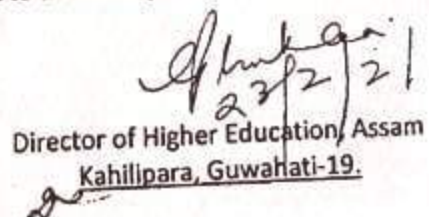 23/2/21
Director of Higher Education, Assam
Kahilipara, Guwahati-19.